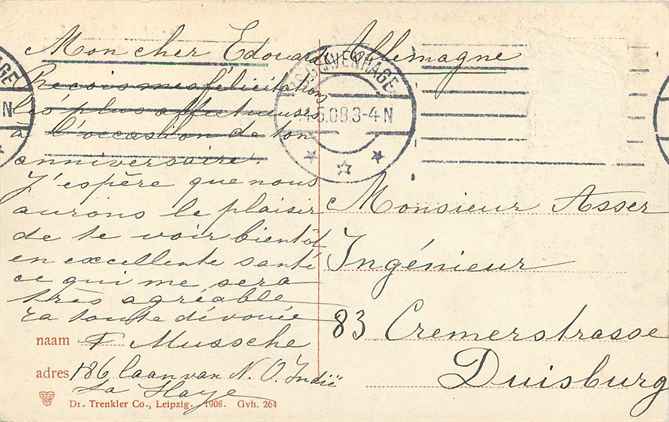 Mon cher Edouard
Reçois mes félicitations
les plus affectueuses
à l'occasion de ton
anniversaire.
J'espère que nous
aurons le plaisir
de te voir bientôt
en excellente santé
ce qui me sera
très agréable
ta toute dévouée
naam F Mussche
adres 186 laan van N. O. Indië
La Haye
Dr. Trenkler Co., Leipzig. 1906. Gvh. 264
'S-GRAVENHAGE
5.08 3-4 N
Allemagne
Monsieur Asser
Ingénieur
83 Cremerstrasse
Duisburg